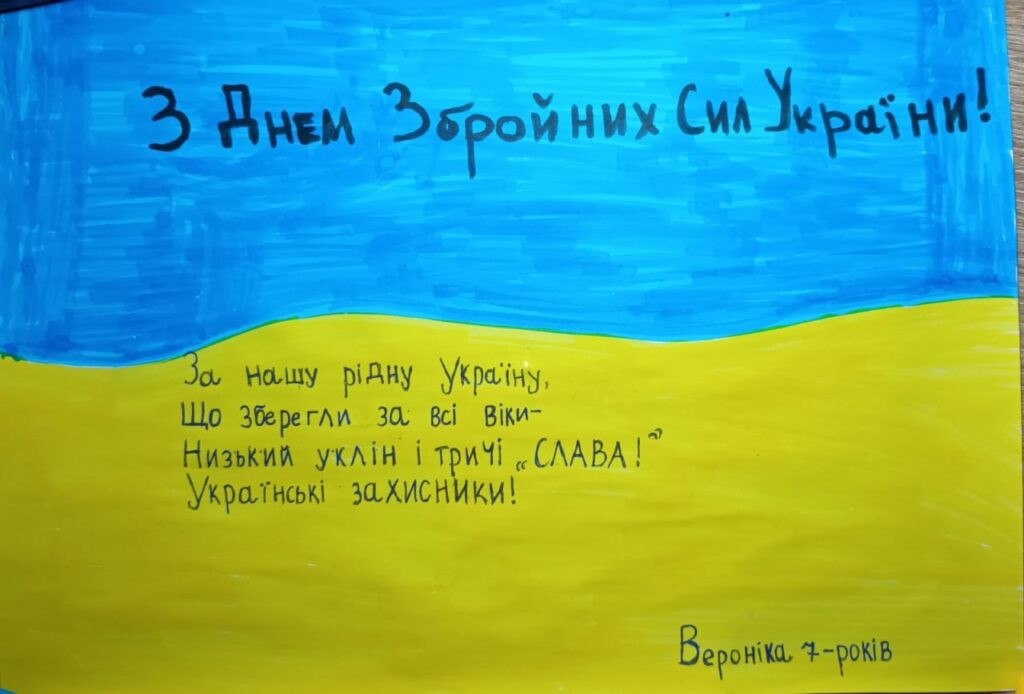 З Днем Збройних Сил України!
За нашу рідну Україну,
Що зберегли за всі віки-
Низький уклін і тричі „СЛАВА!”
Українські захисники!
Вероніка 7-років